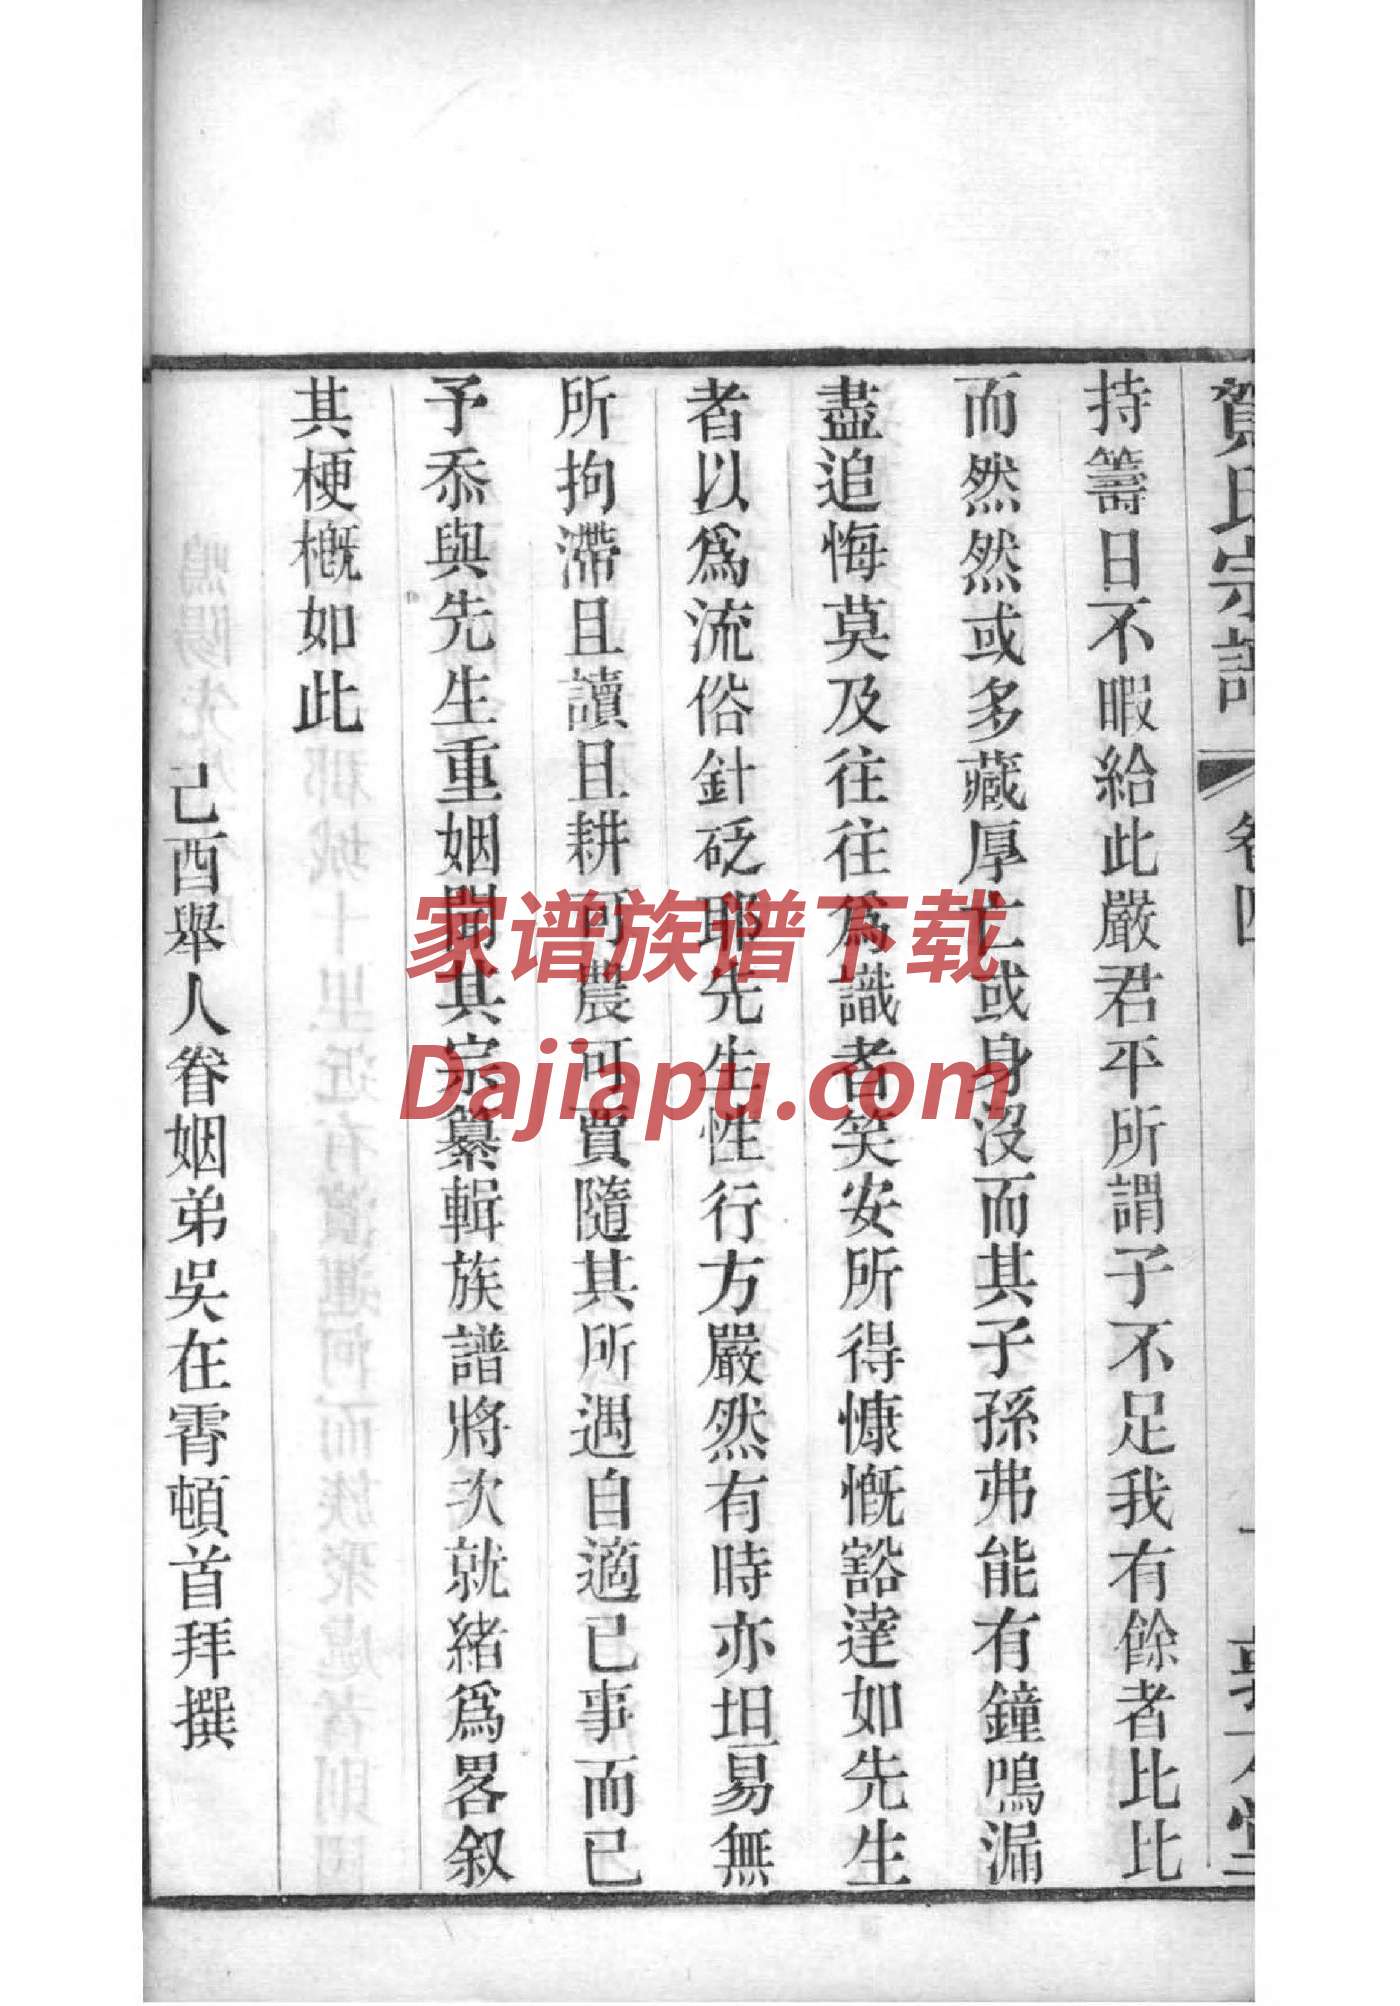 賀氏宗譜 卷四
持籌日不暇給此嚴君平所謂子不足我有餘者比比
而然然或多藏厚亡或身沒而其子孫弗能有鐘鳴漏
盡追悔莫及往往為識者笑安所得慷慨豁達如先生
者以爲流俗針砭耶先生性行方嚴然有時亦坦易無
所拘滯且讀且耕可農可賈隨其所遇自適已事而已
予忝與先生重姻聞其宗纂輯族譜將次就緒爲畧叙
其梗概如此
己酉舉人眷姻弟吳在霄頓首拜撰
家谱族谱下载
Dajiapu.com